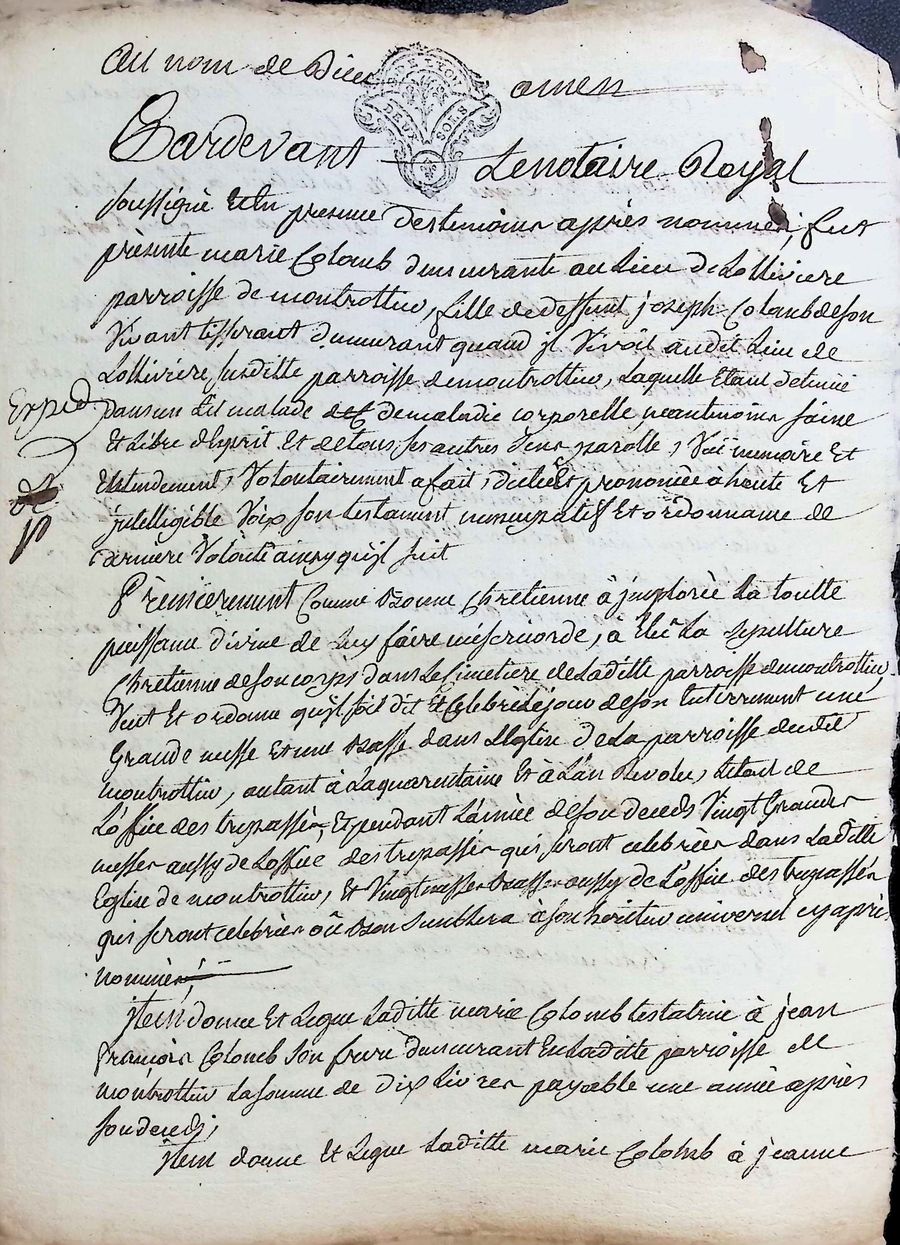 Au nom de Dieu amen
DE LYON
DEUX SOLS
Pardevant Le notaire Royal
soussigné et En presence des temoins après nommés, fut
présente marie Colomb demeurante au Lieu de Lolliviere
parroisse de montrottier, fille de deffunt joseph Colomb de son
Vivant tisserant demeurant quand jl Vivoit audit Lieu de
Lolliviere susditte parroisse de montrottier, Laquelle Etant detenue
dans un Lit malade de maladie corporelle, neantmoins saine
Et Libre d'Esprit et de tous ses autres sens, parolle, Vüe, memoire Et
Entendement, Volontairement a fait, dicté Et prononcée à haute Et
jntelligible Voix son testament nuncupatif Et ordonnance de
derniere Volonté ainsy qu'jl suit
Expéd
Prémierement Comme bonne Chretienne à jmplorée La toutte
puissance divine de Luy faire misericorde, à Elû La sepulture
Chretienne de son corps dans Le Cimetiere de Laditte parroisse de montrottier,
Veut Et ordonne qu'jl soit dit Et Celebré Le jour de son Enterrement une
Grande messe Et une basse dans L'Eglise de La parroisse dudit
montrottier, autant à La quarentaine Et à L'an Revolu, Le tout de
L'office des trepassés, Et pendant L'année de son deceds Vingt Grandes
messes aussy de L'office des trepassés qui seront celebrées dans Laditte
Eglise de montrottier, Et Vingt messes basses aussy de L'office des trepassés
qui seront celebrées où bon Semblera à son heritier universel cy après
nommé
jtem donne Et Legue Laditte marie Colomb testatrice à jean
francois Colomb son frere demeurant En Laditte parroisse de
montrottier La somme de dix Livres payable une année après
son deceds,
jtem donne Et Legue Laditte marie Colomb à jeanne